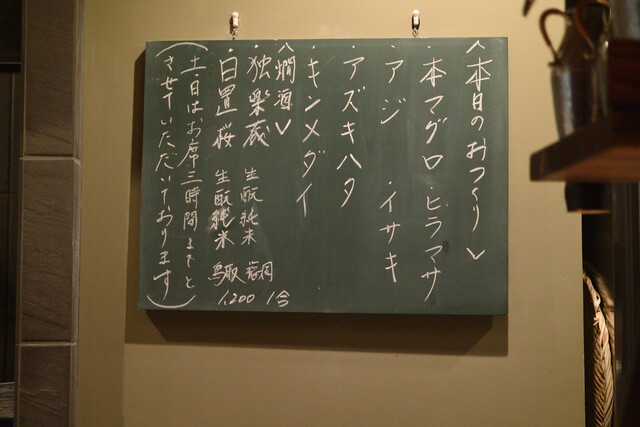 〈本日のおつくり〉
・本マグロ ・ヒラマサ
・アジ ・イサキ
・アズキハタ
・キンメダイ
〈燗酒〉
・独楽蔵 生酛純米 福岡 1合
・日置桜 生酛純米 鳥取 1,200
(土・日はお席三時間までと
させていただいております)